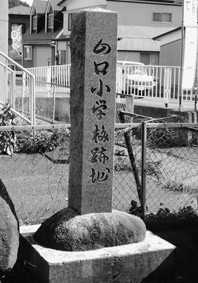 山口小学校跡地